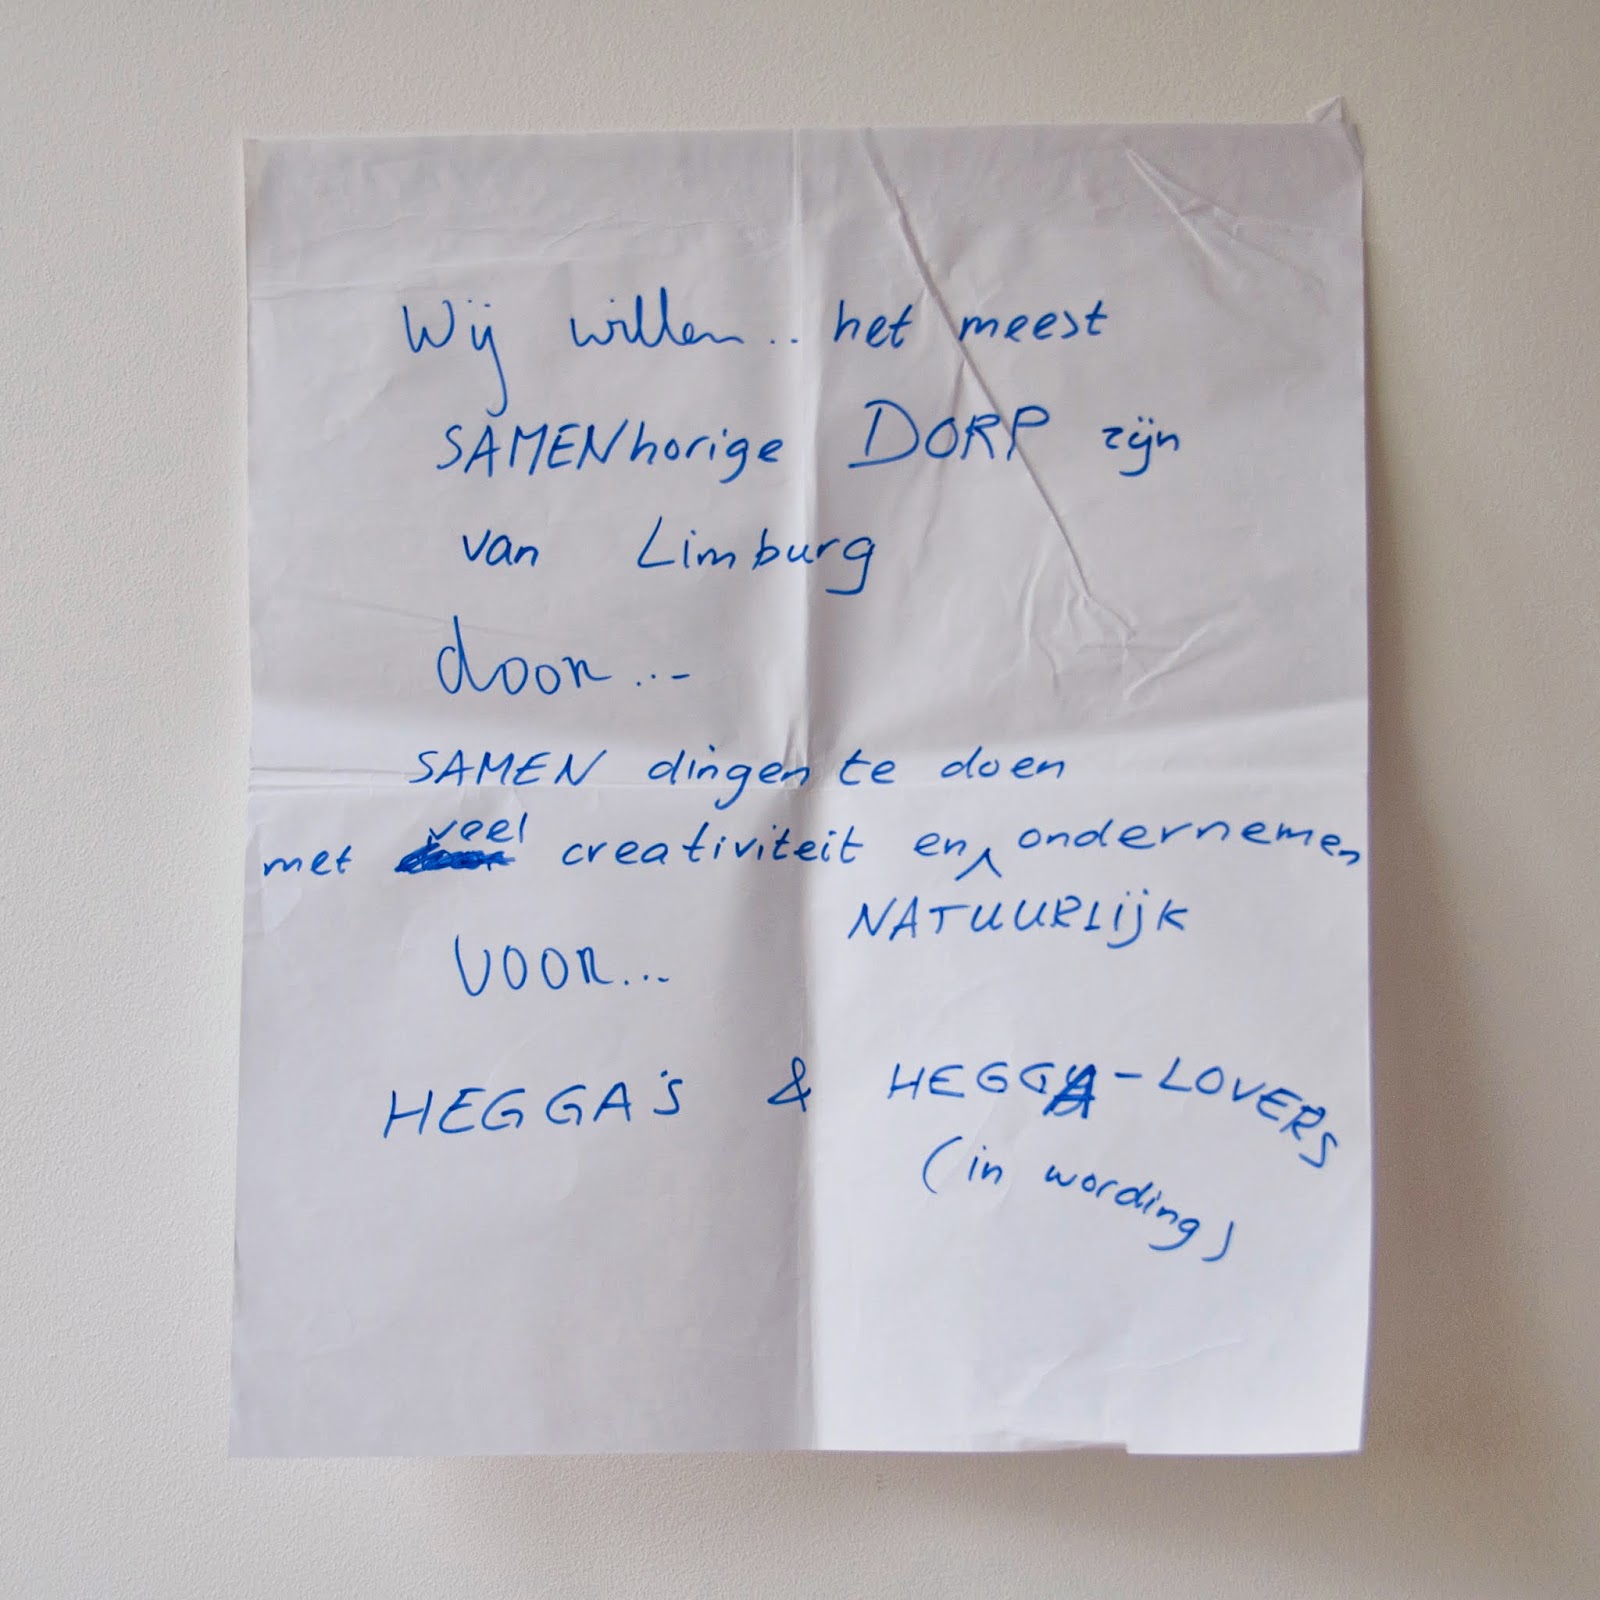 Wij willen.. het meest
SAMENhorige DORP zijn
van Limburg
door...
SAMEN dingen te doen
met veel creativiteit en ondernemen
NATUURLIJK
VOOR...
HEGGA's & HEGGA-LOVERS
(in wording)